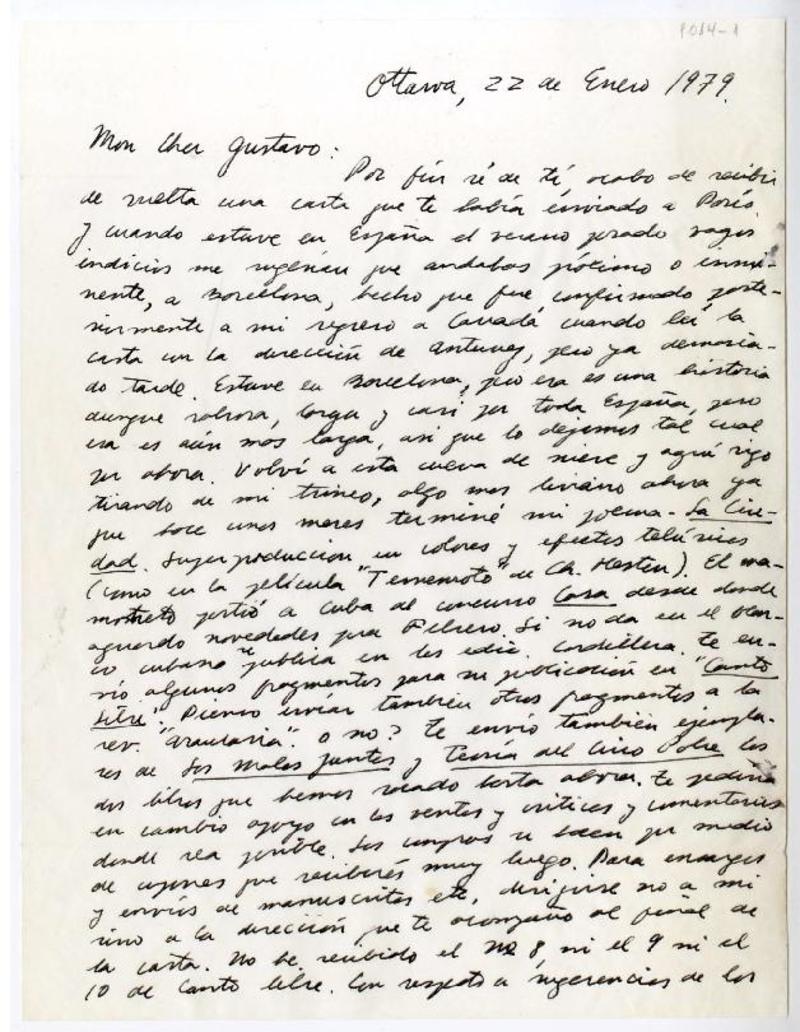 1084-1
Ottawa, 22 de Enero 1979.
Mon Cher Gustavo:
Por fin sé de tí, acabo de recibir
de vuelta una carta que te había enviado a París
y cuando estuve en España el verano pasado vagos
indicios me sugerían que andabas próximo o inmi-
nente, a Barcelona, hecho que fue confirmado poste-
riormente a mi regreso a Canadá cuando leí la
carta con la dirección de Antunez, pero ya demasia-
do tarde. Estuve en Barcelona, pero esa es una historia
aunque sabrosa, larga y casi por toda España, pero
esa es aún más larga, así que lo dejamos tal cual
por ahora. Volví a esta cueva de nieve y aquí sigo
tirando de mi trineo, algo mas liviano ahora ya
que hace unos meses terminé mi poema - La Ciu-
dad. Superproducción en colores y efectos telúricos
(como en la película "Terremoto" de Ch. Heston). El ma-
motreto partió a Cuba al concurso Casa desde donde
aguardo novedades para Febrero. Si no da en el
cubano se publica en las edic. Cordillera. Te en-
vío algunos fragmentos para su publicación en "Canto
Libre". Pienso enviar también otros fragmentos a la
rev. "Araucaria". o no? Te envío también ejempla-
res de Los Malos Juntos y Teoría del Circo Pobre los
dos libros que hemos sacado hasta ahora. Te pediría
en cambio apoyo en las ventas y críticas y comentarios
donde sea posible. Las compras se hacen por medio
de cupones que recibirás muy luego. Para encargos
y envíos de manuscritos etc, dirigirse no a mi
sino a la dirección que te acompaño al final de
la carta. No he recibido el Nº 8, ni el 9 ni el
10 de Canto Libre. Con respecto a sugerencias de los